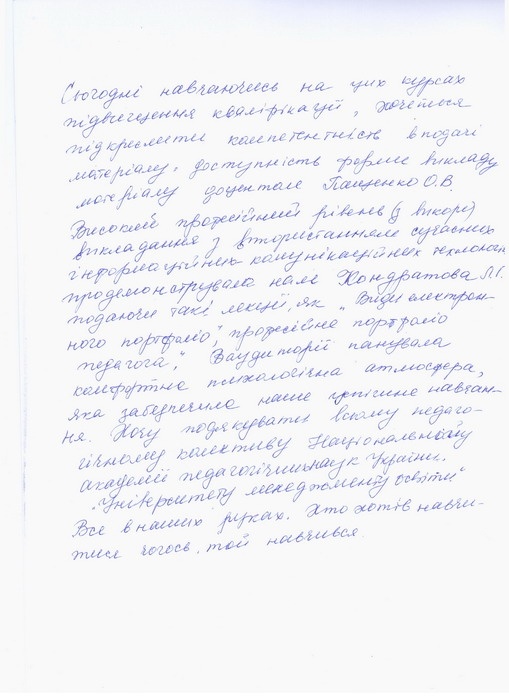 Сьогодні навчаючись на цих курсах
підвищення кваліфікації, хочеться
підкреслити компетентність в подачі
матеріалу, доступність форми викладу
матеріалу доцентом Пащенко О.В.
Високий професійний рівень
викладання з використанням сучасних
інформаційних комунікаційних технологій
продемонструвала нам Кондратова Л.Г.
подаючи такі лекції, як „Види електрон-
ного портфоліо", „професійне портфоліо
педагога". В аудиторії панувала
комфортна психологічна атмосфера,
яка забезпечила наше успішне навчан-
ня. Хочу подякувати всьому педаго-
гічному колективу Національної
академії педагогічних наук України.
„Університету менеджменту освіти"
Все в наших руках. Хто хотів навчи-
тися чогось, той навчився.